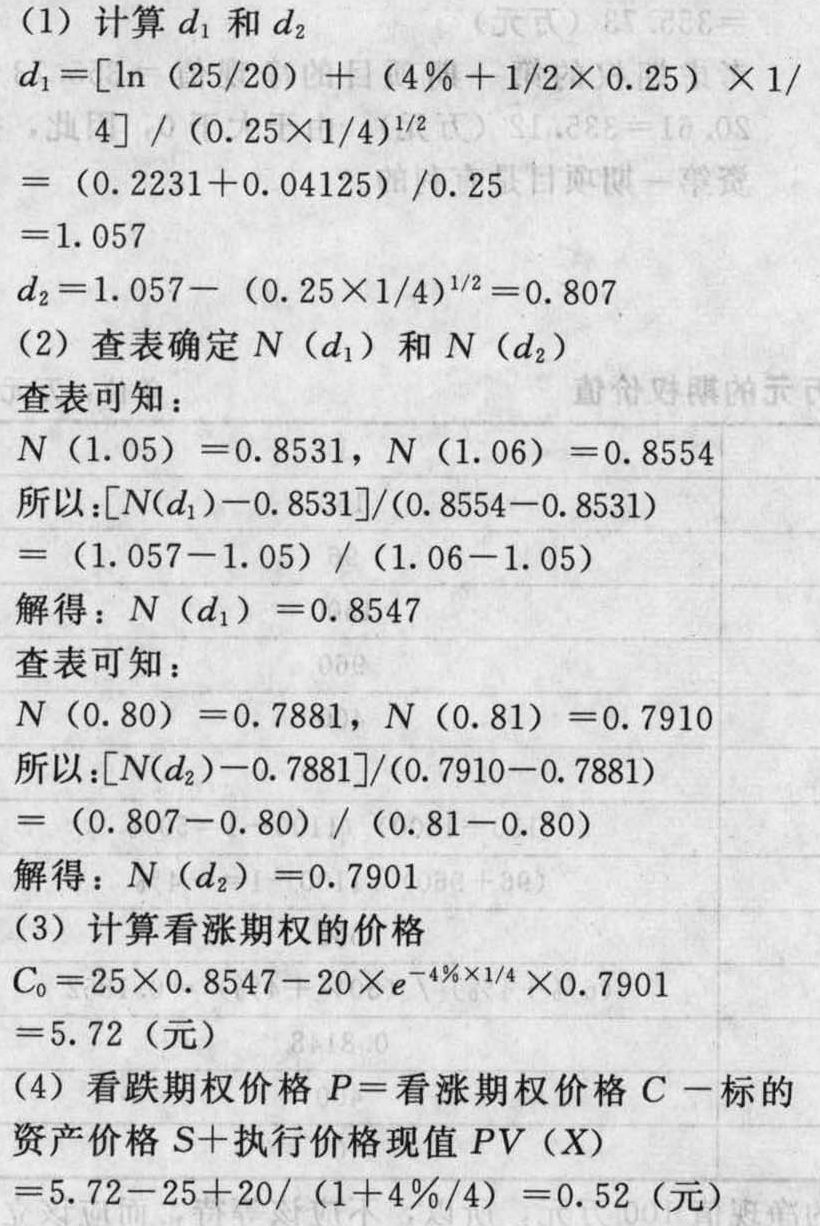 （1）计算 d₁ 和 d₂
d₁＝[ln（25/20）＋（4%＋1/2×0.25）×1/
4] /（0.25×1/4）^{1/2}
＝（0.2231＋0.04125）/0.25
＝1.057
d₂＝1.057－（0.25×1/4）^{1/2}＝0.807
（2）查表确定 N（d₁）和 N（d₂）
查表可知：
N（1.05）＝0.8531，N（1.06）＝0.8554
所以:[N(d₁)－0.8531]/(0.8554－0.8531)
＝（1.057－1.05）/（1.06－1.05）
解得：N（d₁）＝0.8547
查表可知：
N（0.80）＝0.7881，N（0.81）＝0.7910
所以:[N(d₂)－0.7881]/(0.7910－0.7881)
＝（0.807－0.80）/（0.81－0.80）
解得：N（d₂）＝0.7901
（3）计算看涨期权的价格
C₀＝25×0.8547－20×e^{－4%×1/4}×0.7901
＝5.72（元）
（4）看跌期权价格 P＝看涨期权价格 C －标的
资产价格 S＋执行价格现值 PV（X）
＝5.72－25＋20/（1＋4%/4）＝0.52（元）